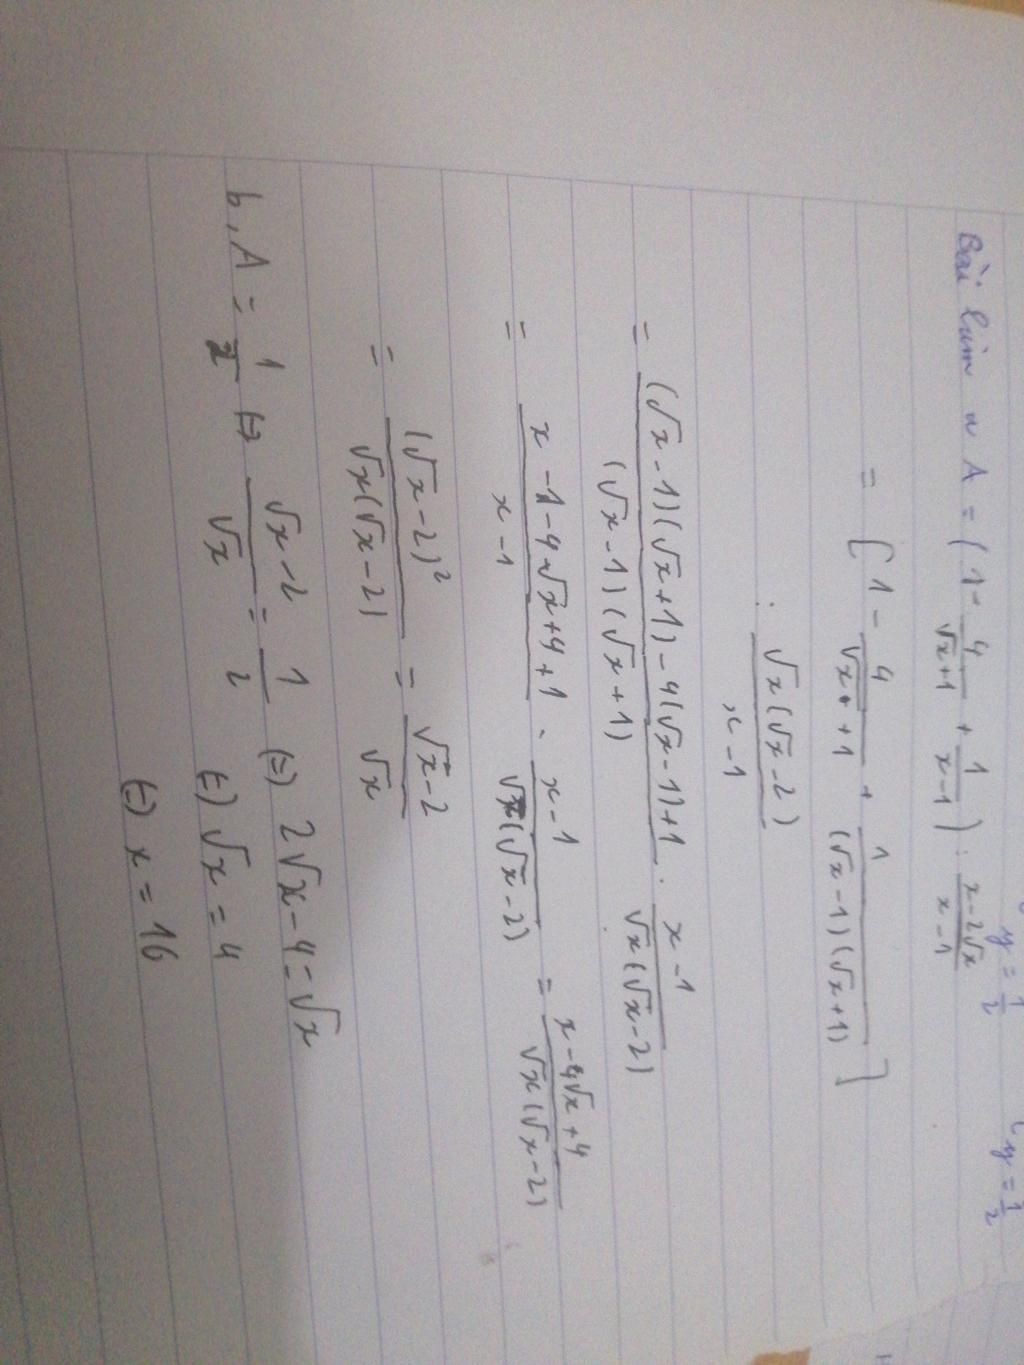 y = 1/2 y = 1/2
Bài làm a A = (1 - 4/(√x+1) + 1/(x-1)) : (x-2√x)/(x-1)
= [1 - 4/(√x+1) + 1/((√x-1)(√x+1))]
: √x(√x-2)/(x-1)
= ((√x-1)(√x+1)-4(√x-1)+1)/((√x-1)(√x+1)) . (x-1)/(√x(√x-2))
= (x-1-4√x+4+1)/(x-1) . (x-1)/(√x(√x-2)) = (x-4√x+4)/(√x(√x-2))
= (√x-2)²/(√x(√x-2)) = (√x-2)/√x
b, A = 1/2 (=) (√x-2)/√x = 1/2 (=) 2√x-4=√x
(=) √x = 4
(=) x = 16